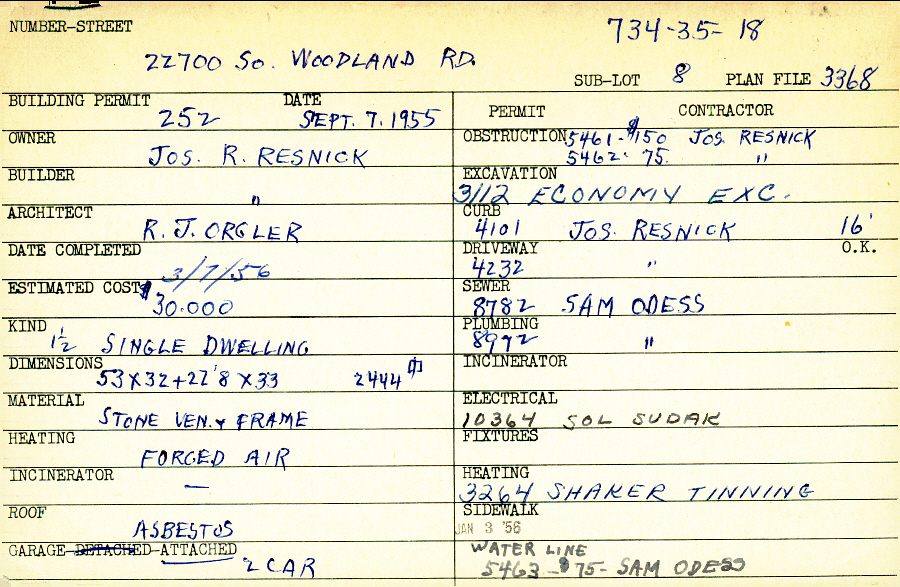 NUMBER-STREET
734-35-18
22700 SO. WOODLAND RD.
SUB-LOT 8 PLAN FILE 3368
BUILDING PERMIT DATE
252 SEPT. 7. 1955
OWNER
JOS. R. RESNICK
BUILDER
"
ARCHITECT
R. J. ORGLER
DATE COMPLETED
3/7/56
ESTIMATED COST $
30.000
KIND
1½ SINGLE DWELLING
DIMENSIONS
53X32+22'8 X33 2444 ▢'
MATERIAL
STONE VEN. & FRAME
HEATING
FORCED AIR
INCINERATOR
—
ROOF
ASBESTOS
GARAGE-DETACHED-ATTACHED
2 CAR
PERMIT CONTRACTOR
OBSTRUCTION 5461-$150 JOS. RESNICK
5462- 75. "
EXCAVATION
3112 ECONOMY EXC.
CURB
4101 JOS. RESNICK 16'
DRIVEWAY O.K.
4232 "
SEWER
8782 SAM ODESS
PLUMBING
8972 "
INCINERATOR
ELECTRICAL
10364 SOL SUDAK
FIXTURES
HEATING
3264 SHAKER TINNING
SIDEWALK
JAN 3 '56
WATER LINE
5463-$75- SAM ODESS